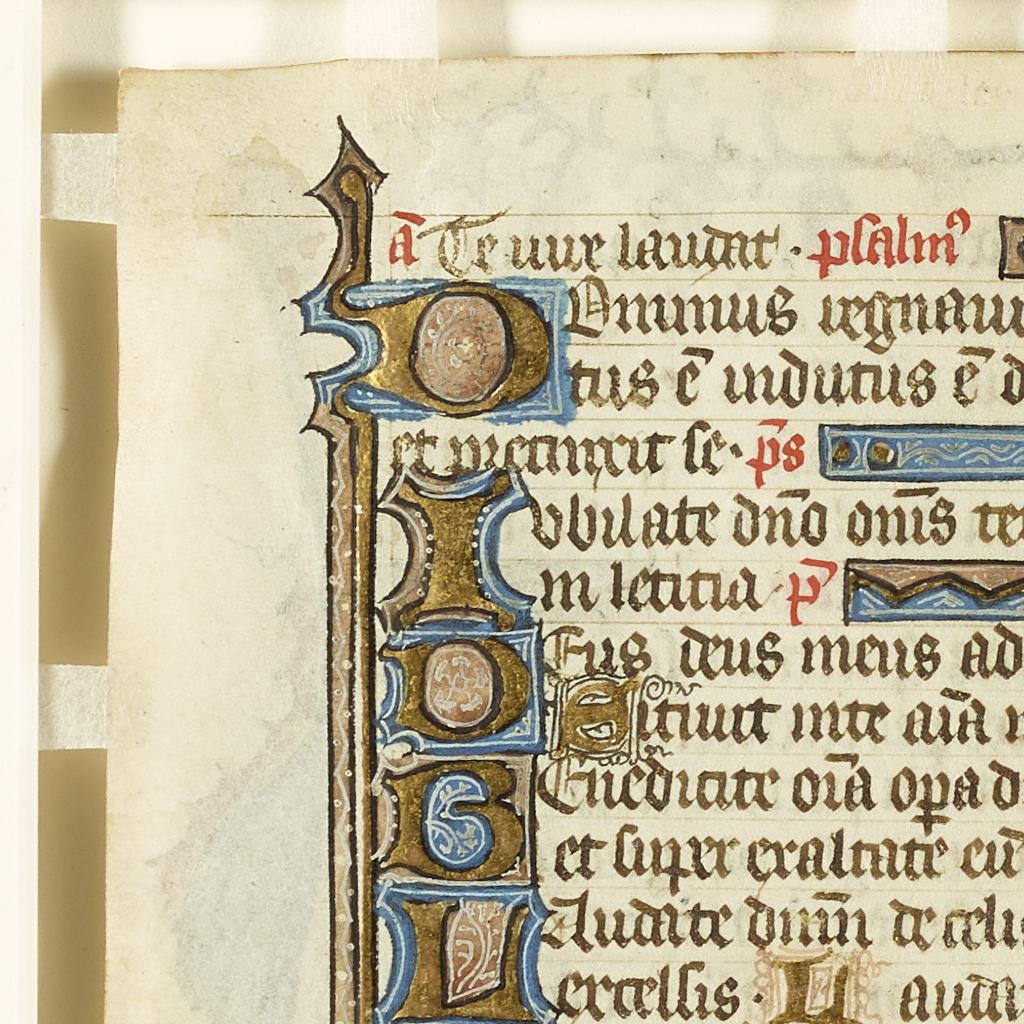 aᷓ Te iure laudat · psalm⁹
DOminus regnauit
tus ē indutus ē d
et precinxit se · p̄s
Iubilate dn̄o om̄is te
in leticia p̄
DEus deus meus ad
Sitiuit in te aīa m
BEnedicite oīa oꝑa d
et super exaltate eū
LAudate dnm̄ de celis
excelsis · Lauda